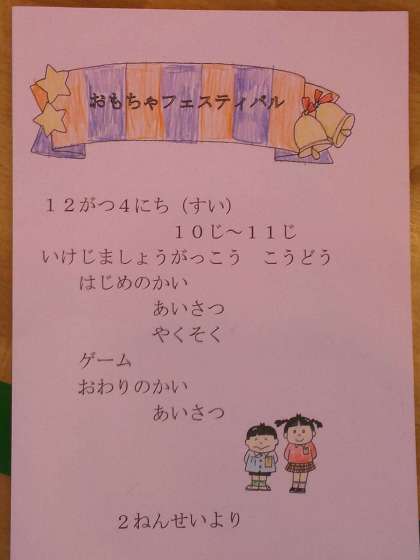 おもちゃフェスティバル
１２がつ４にち（すい）
１０じ～１１じ
いけじましょうがっこう　こうどう
はじめのかい
あいさつ
やくそく
ゲーム
おわりのかい
あいさつ
２ねんせいより